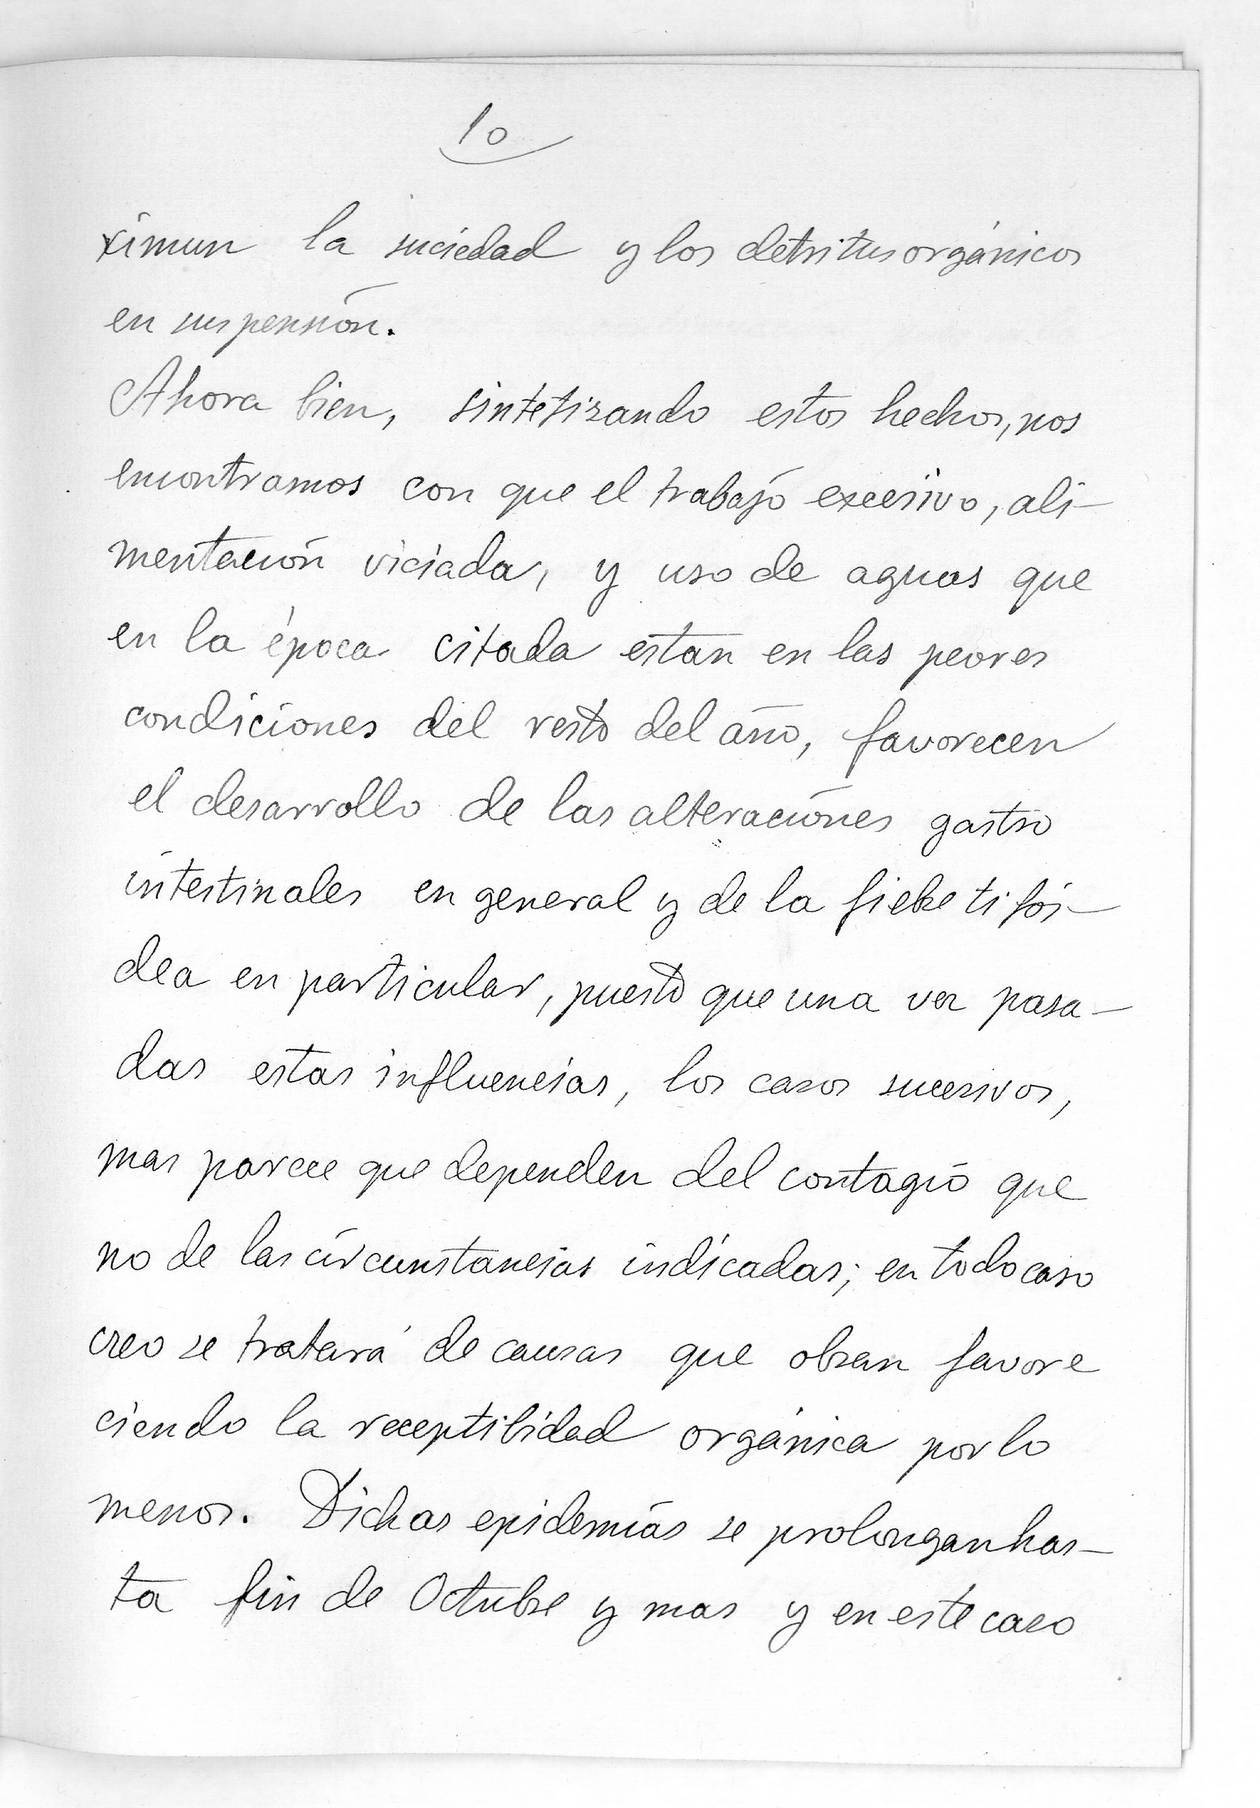 10
ximun la suciedad y los detritus orgánicos
en suspensión.
Ahora bien, sintetizando estos hechos, nos
encontramos con que el trabajo excesivo, ali-
mentación viciada, y uso de aguas que
en la época citada estan en las peores
condiciones del resto del año, favorecen
el desarrollo de las alteraciónes gastro
intestinales en general y de la fiebre tifói-
dea en particular, puesto que una vez pasa-
das estas influencias, los casos sucesivos,
mas parece que dependen del contagio que
no de las circunstancias indicadas; en todo caso
creo se tratará de causas que obran favore
ciendo la receptibidad orgánica por lo
menos. Dichas epidemias se prolongan has-
ta fin de Octubre y mas y en este caso